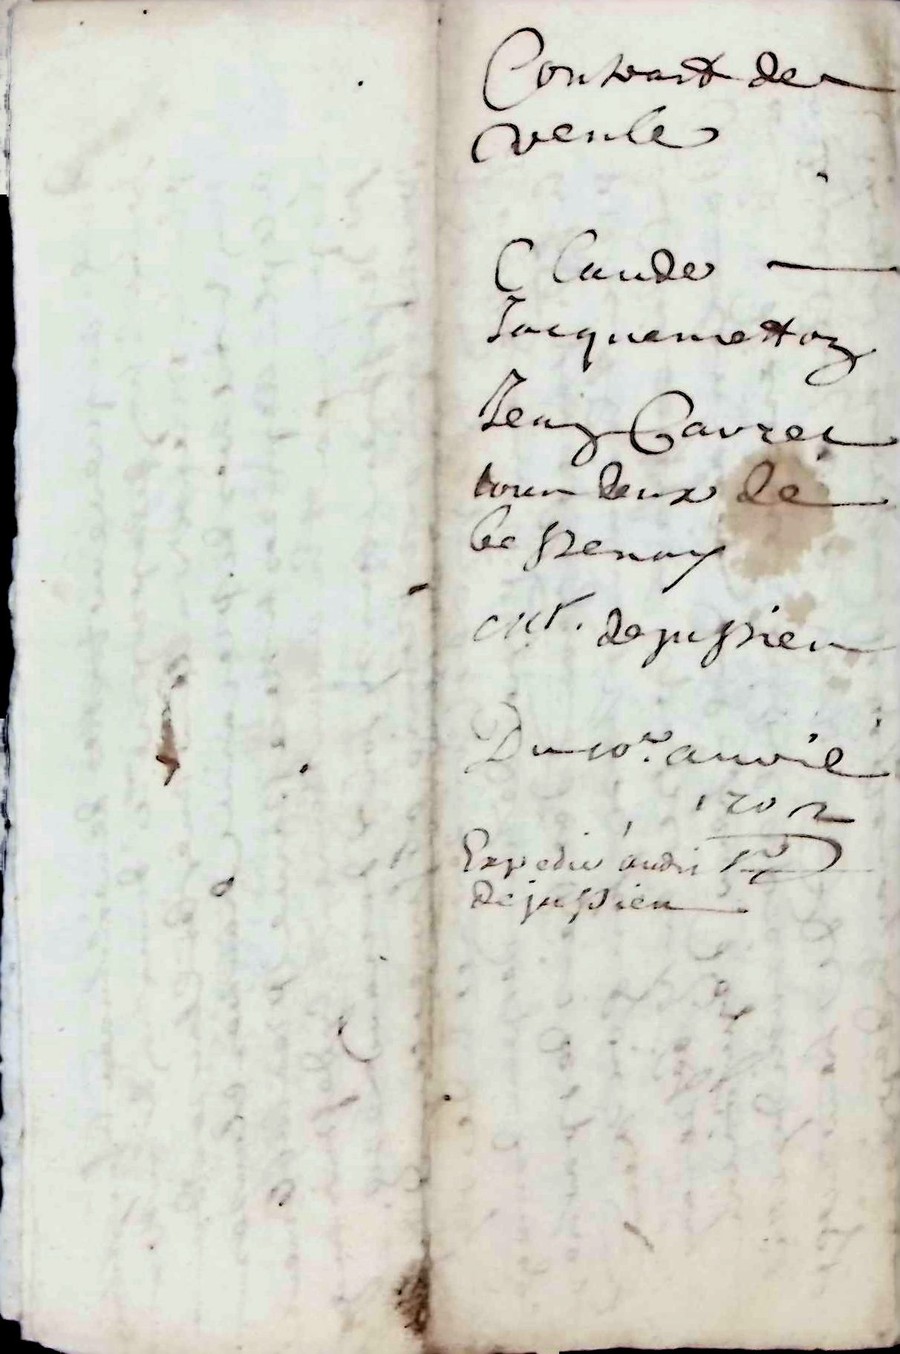 Contract de
vente
Claude
Jacquemetton
Jean Gavret
tous deux de
Bessenay
dejussieu
Du 10e. auvril
1702
Expedié audit
dejussieu